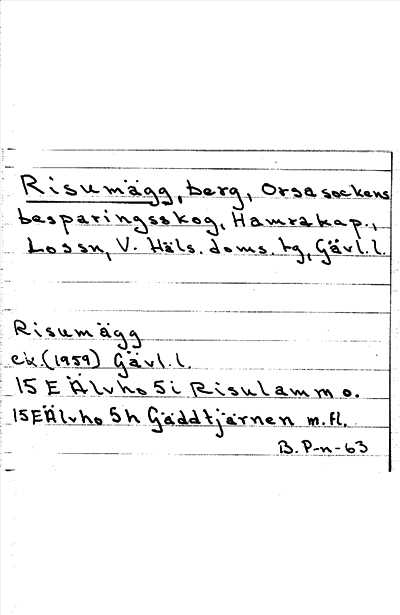 Risumägg, berg, Orsa sockens
besparingsskog, Hamra kap.,
Lossn, V. Häls. doms. tg, Gävl.l.
Risumägg
ek. (1959) Gävl.l.
15 E Älvho 5i Risulammo.
15E Älvho 5h Gäddtjärnen m.fl.
B. P-n-63